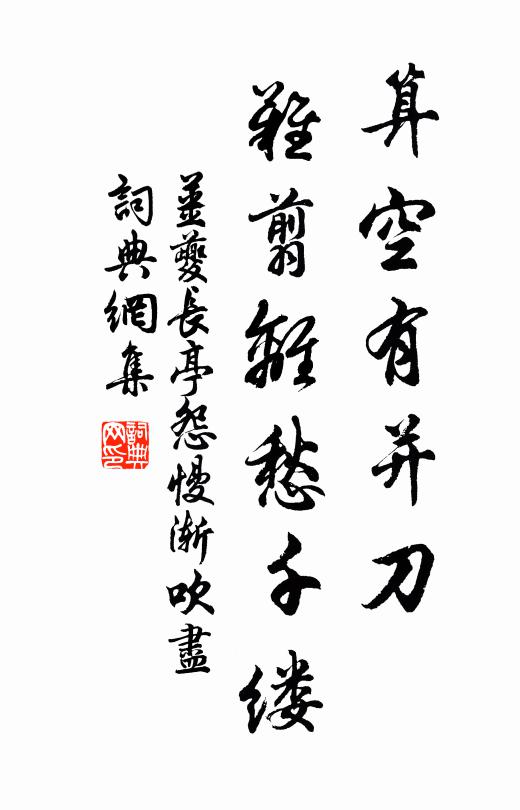 算空有并刀
難翦離愁千缕
姜夔長亭怨慢漸吹盡
詞典網集
詞典网印